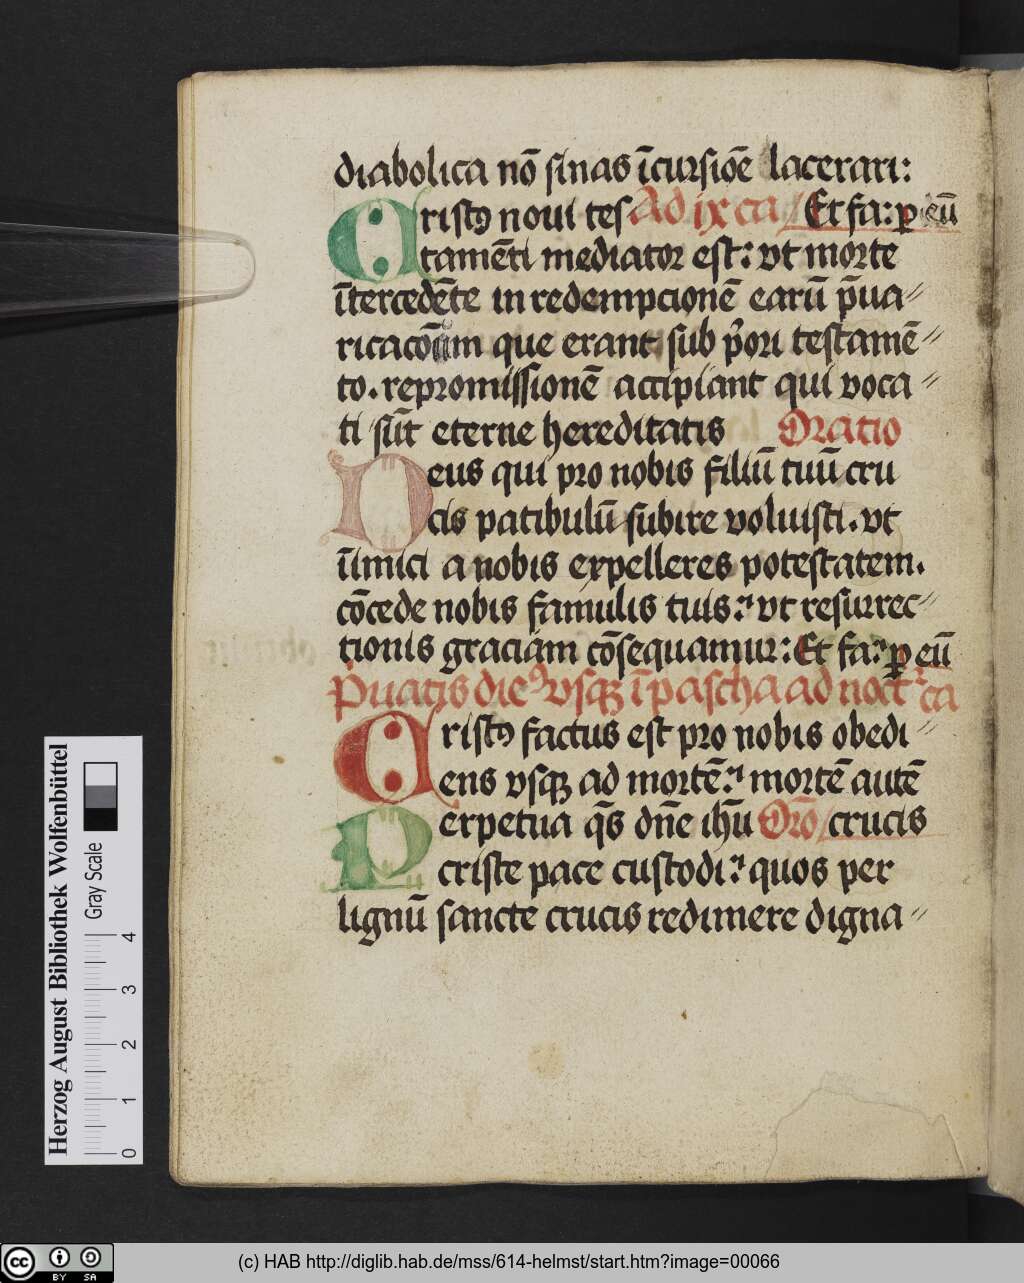 diabolica nō sinas īcursiōe lacerari:
Cristꝰ noui tes Ad ix ca Et fa: ꝑ eū
tamēti mediator est: vt morte
ītercedēte in redempcionē earū p̄ua〃
ricacōnum que erant sub p̓ori testamē〃
to. repromissionē accipiant qui voca〃
ti sūt eterne hereditatis Oratio
Deus qui pro nobis filiū tuū cru
cis patibulū subire voluisti. vt
īimici a nobis expelleres potestatem.
cōcede nobis famulis tuis: vt resurrec〃
tionis graciam cōsequamur: Et fa: ꝑ eū
Pͥuatis dieꝰ vsqꝫ ī pascha ad noct ca
Cristꝰ factus est pro nobis obedi〃
ens vsqꝫ ad mortē: mortē autē
Perpetua q̄s dn̄e ih̄u Orō crucis
criste pace custodi: quos per
lignū sancte crucis redimere digna〃
Herzog August Bibliothek Wolfenbüttel
Gray Scale
0 1 2 3 4
cc BY SA
(c) HAB http://diglib.hab.de/mss/614-helmst/start.htm?image=00066